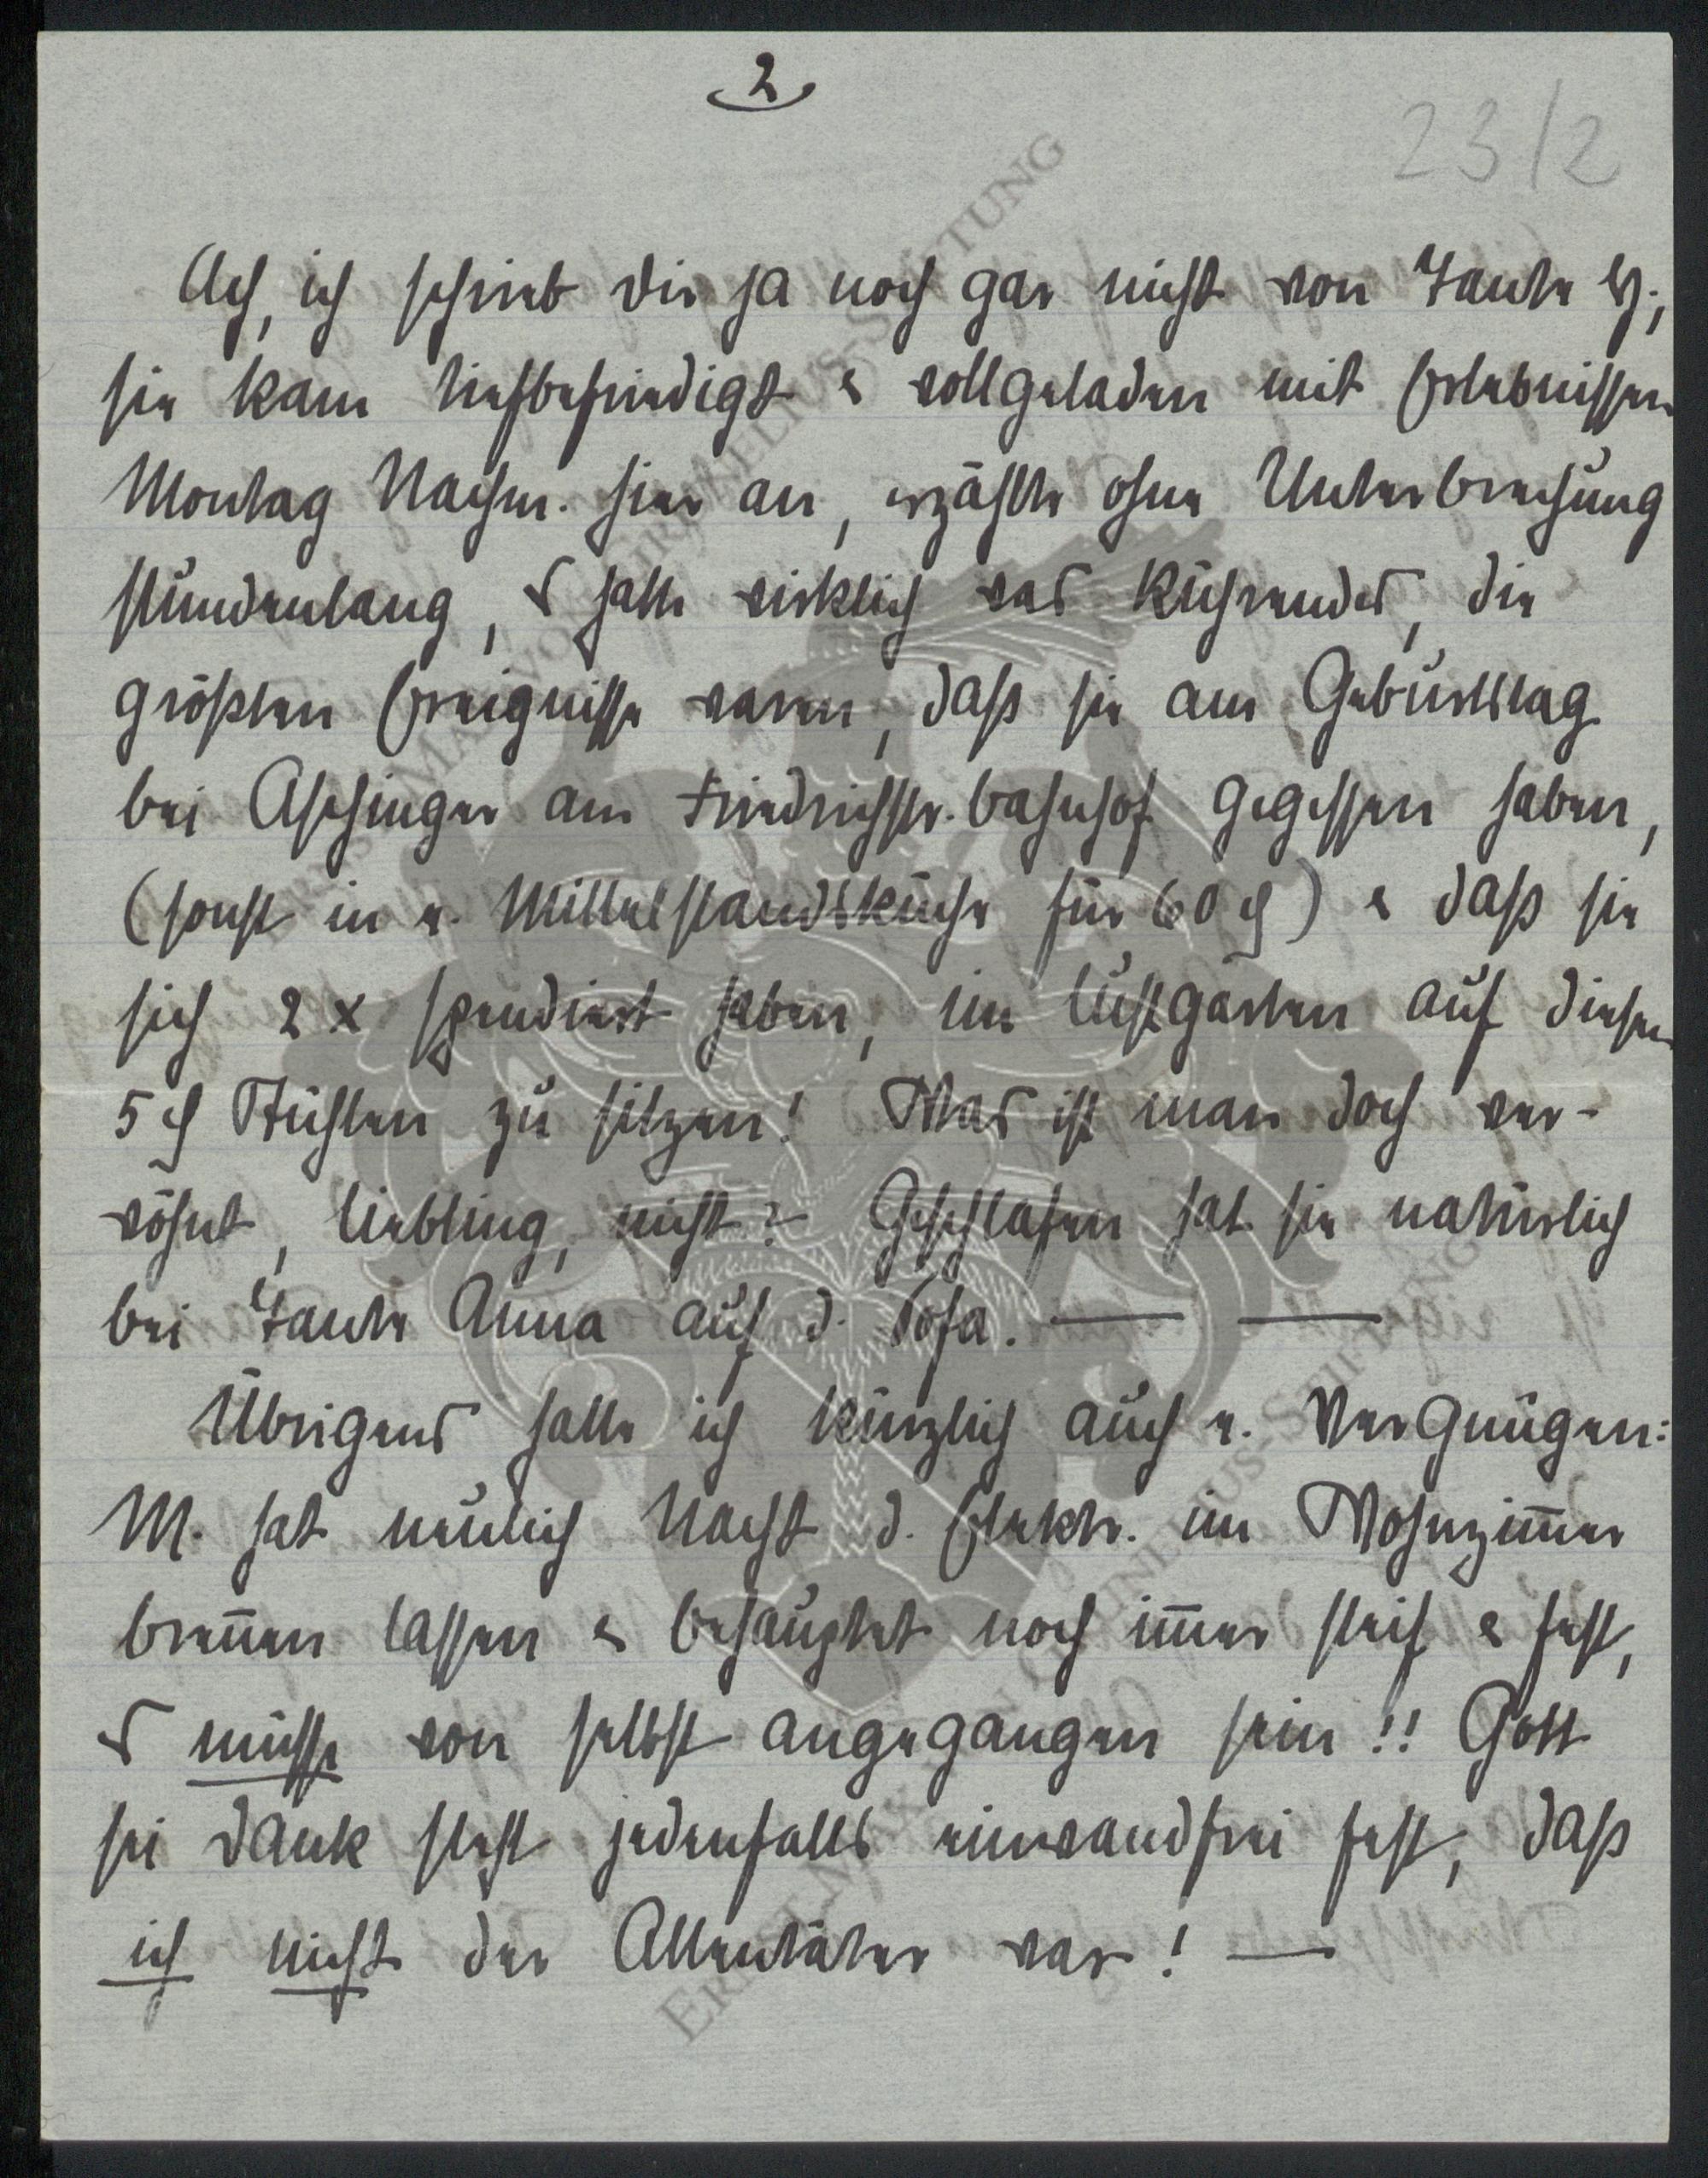 2
23/2
Ach, ich schrieb Dir ja noch gar nicht von Tante H.,
sie kam tiefbefriedigt & vollgeladen mit Erlebnissen
Montag Nachm. hier an, erzählte ohne Unterbrechung
stundenlang, es hatte wirklich was Rührendes, die
größten Ereignisse waren, daß sie am Geburtstag
bei Aschinger am Friedrichstr. bahnhof gegessen haben,
(sonst in e. Mittelstandsküche für 60 ₰) & daß sie
sich 2 x spendiert haben, im Lustgarten auf diesen
5 ₰ Stühlen zu sitzen! Was ist man doch ver-
wöhnt, Liebling, nicht? Geschlafen hat sie natürlich
bei Tante Anna auf d. Sofa. — —
Übrigens hatte ich kürzlich auch e. Vergnügen:
M. hat neulich Nacht d. Elektr. im Wohnzim̄er
bren̄en lassen & behauptet noch im̄er steif & fest,
es müsse von selbst angegangen sein!! Gott
sei Dank steht jedenfalls einwandfrei fest, daß
ich nicht der Attentäter war! —
ERNST-MAX VON GRUNELIUS-STIFTUNG
ERNST-MAX VON GRUNELIUS-STIFTUNG